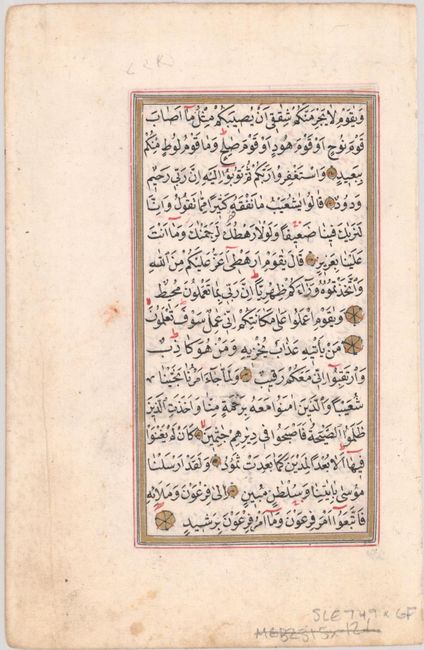 وَيٰقَوْمِ لَا يَجْرِمَنَّكُمْ شِقَاقِي أَنْ يُصِيبَكُمْ مِثْلُ مَا أَصَابَ
قَوْمَ نُوحٍ أَوْ قَوْمَ هُودٍ أَوْ قَوْمَ صٰلِحٍ وَمَا قَوْمُ لُوطٍ مِنْكُمْ
بِبَعِيدٍ وَاسْتَغْفِرُوا رَبَّكُمْ ثُمَّ تُوبُوا إِلَيْهِ إِنَّ رَبِّي رَحِيمٌ
وَدُودٌ قَالُوا يٰشُعَيْبُ مَا نَفْقَهُ كَثِيرًا مِمَّا تَقُولُ وَإِنَّا
لَنَرٰيكَ فِينَا ضَعِيفًا وَلَوْلَا رَهْطُكَ لَرَجَمْنٰكَ وَمَا أَنْتَ
عَلَيْنَا بِعَزِيزٍ قَالَ يٰقَوْمِ أَرَهْطِي أَعَزُّ عَلَيْكُمْ مِنَ اللهِ
وَاتَّخَذْتُمُوهُ وَرَاءَكُمْ ظِهْرِيًّا إِنَّ رَبِّي بِمَا تَعْمَلُونَ مُحِيطٌ
وَيٰقَوْمِ اعْمَلُوا عَلَى مَكَانَتِكُمْ إِنِّي عَمِلٌ سَوْفَ تَعْلَمُونَ
مَنْ يَأْتِيهِ عَذَابٌ يُخْزِيهِ وَمَنْ هُوَ كَاذِبٌ
وَارْتَقِبُوا إِنِّي مَعَكُمْ رَقِيبٌ وَلَمَّا جَاءَ أَمْرُنَا نَجَّيْنَا
شُعَيْبًا وَالَّذِينَ اٰمَنُوا مَعَهُ بِرَحْمَةٍ مِنَّا وَأَخَذَتِ الَّذِينَ
ظَلَمُوا الصَّيْحَةُ فَأَصْبَحُوا فِي دِيٰرِهِمْ جٰثِمِينَ كَأَنْ لَمْ يَغْنَوْا
فِيهَا أَلَا بُعْدًا لِمَدْيَنَ كَمَا بَعِدَتْ ثَمُودُ وَلَقَدْ أَرْسَلْنَا
مُوسٰى بِاٰيٰتِنَا وَسُلْطٰنٍ مُبِينٍ إِلٰى فِرْعَوْنَ وَمَلَائِهِ
فَاتَّبَعُوا أَمْرَ فِرْعَوْنَ وَمَا أَمْرُ فِرْعَوْنَ بِرَشِيدٍ
SLE749xGF